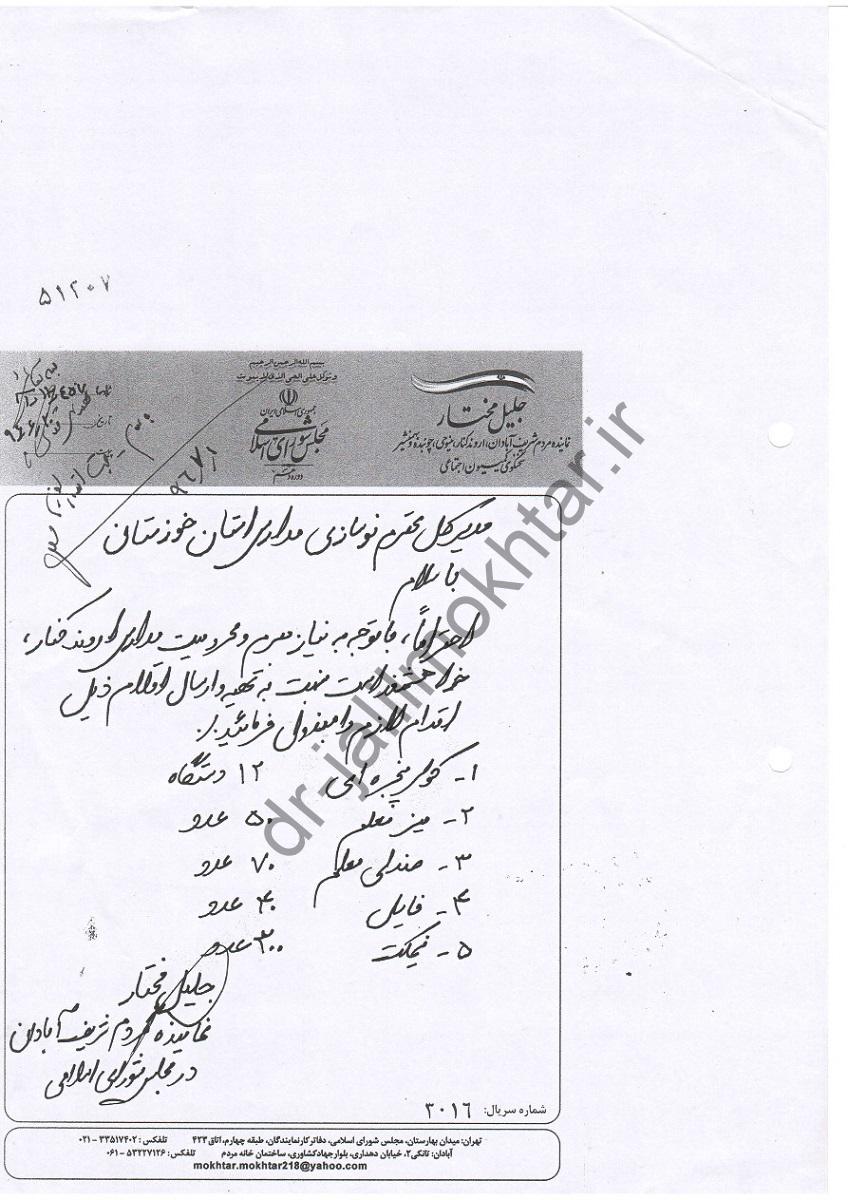 ۵۱۲۰۷
بسم الله الرحمن الرحیم
و توکل علی الحی الذی لا یموت
جمهوری اسلامی ایران
مجلس شورای اسلامی
دوره دهم
جلیل مختار
نماینده مردم شریف آبادان، اروندکنار، مینوحی، چوئبده و بهمنشیر
سخنگوی کمیسیون اجتماعی
تاریخ
۹۶/۷/۱
مدیر کل محترم نوسازی مدارس استان خوزستان
با سلام
احتراماً، با توجه به نیاز مبرم و محرومیت مدارس اروندکنار،
خواهشمند است نسبت به تهیه و ارسال اقلام ذیل
اقدام لازم را مبذول فرمائید./.
۱- کولر پنجره ای ۱۲ دستگاه
۲- میز معلم ۵۰ عدد
۳- صندلی معلم ۷۰ عدد
۴- فایل ۴۰ عدد
۵- نیمکت ۳۰۰ عدد
جلیل مختار
نماینده مردم شریف آبادان
در مجلس شورای اسلامی
شماره سریال: ۳۰۱۶
تهران: میدان بهارستان، مجلس شورای اسلامی، دفاتر کار نمایندگان، طبقه چهارم، اتاق ۴۲۳ تلفکس: ۳۳۵۱۷۴۰۲ - ۰۲۱
آبادان: تانکی۲، خیابان دهداری، بلوار جهاد کشاورزی، ساختمان خانه مردم تلفکس: ۵۳۲۲۷۱۲۶ - ۰۶۱
mokhtar.mokhtar218@yahoo.com
dr-jalilmokhtar.ir